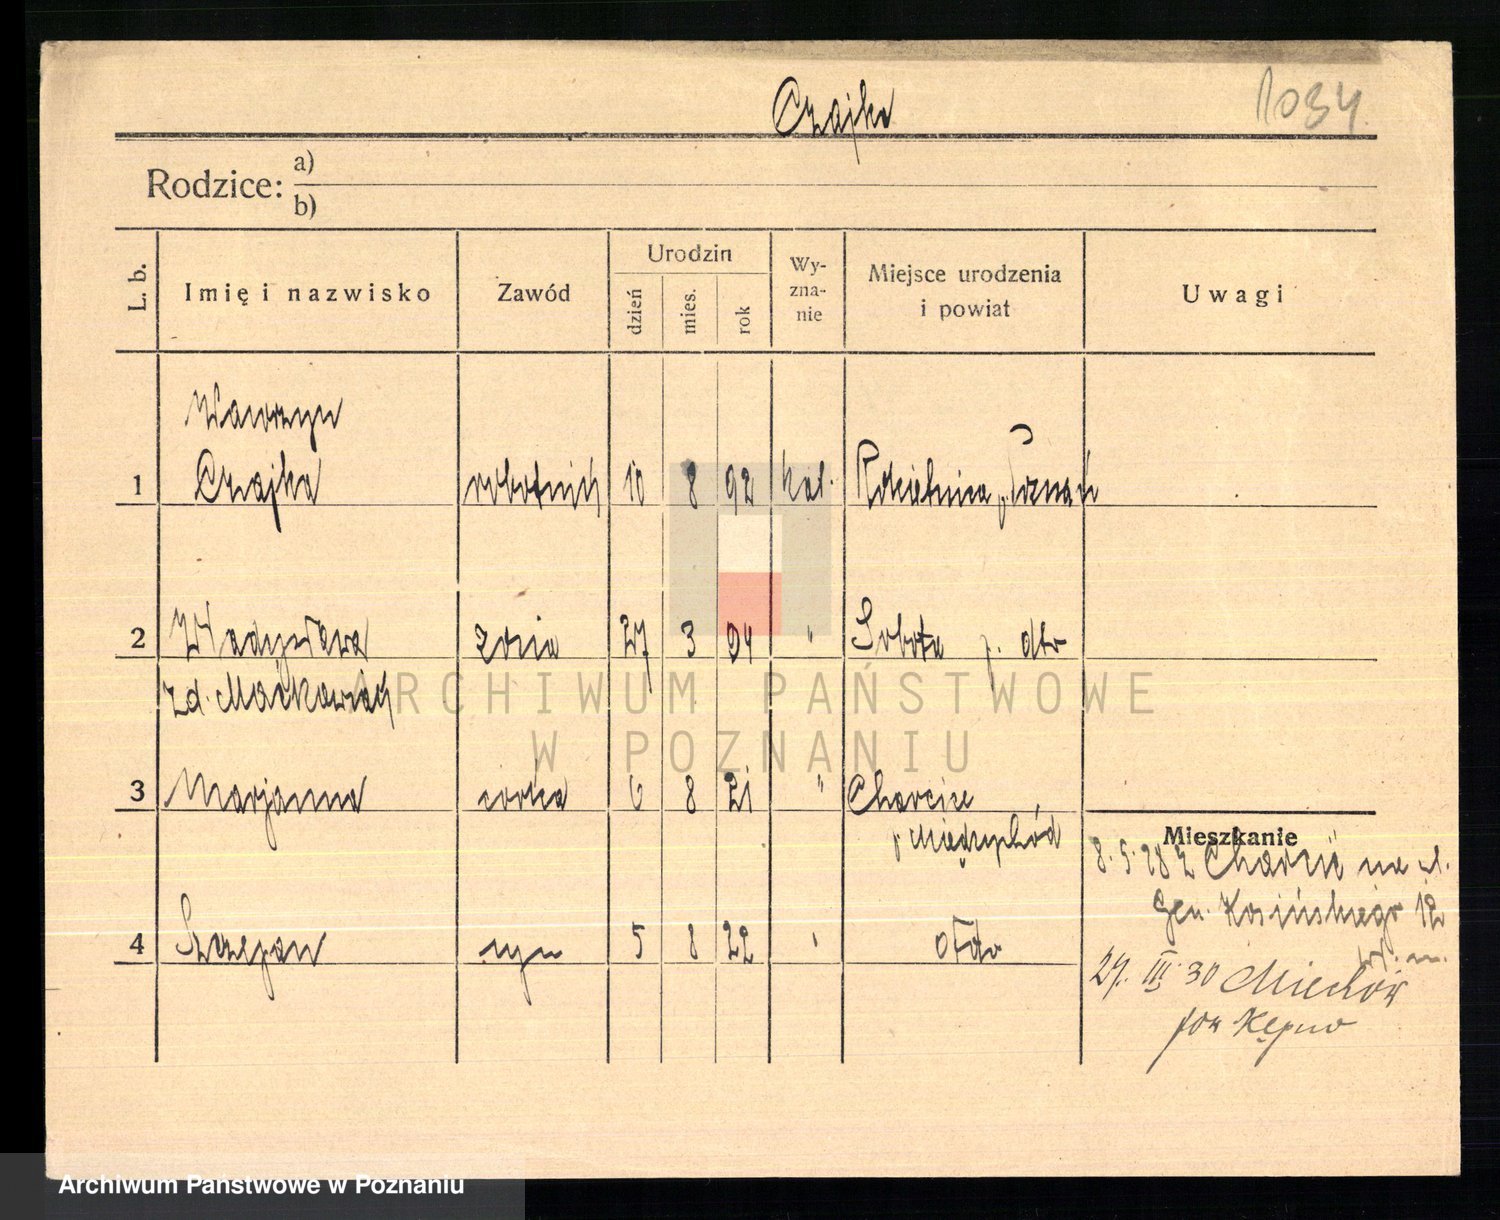 Czajka
1034
Rodzice: a)
b)
L. b. Imię i nazwisko Zawód Urodzin dzień mies. rok Wy-zna-nie Miejsce urodzenia i powiat Uwagi
Wawrzyn
1 Czajka robotnik 10 8 92 kat. Kościelnica p. Poznań
2 Władysława żona 27 3 94 " Sobota p. dto
zd. Maćkowiak
3 Marjanna córka 6 8 21 " Charcice
p Międzychód
Mieszkanie
8.5.28 z Charcic na ul.
Gen. Kosińskiego 12
4 Szczepan syn 5 8 22 " dto
27. III. 30
pow Kępno
ARCHIWUM PAŃSTWOWE
W POZNANIU
Archiwum Państwowe w Poznaniu